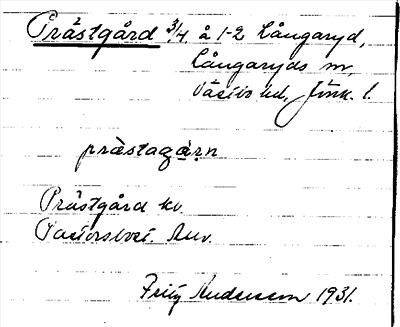 Prästgård 3/4 å 1-2 Långaryd,
Långaryds sn,
Västbo hd, Jönk. l.
prästagạ̈rn
Prästgård kv.
Pastorsbost. Auv.
Fritz Andersson 1931.